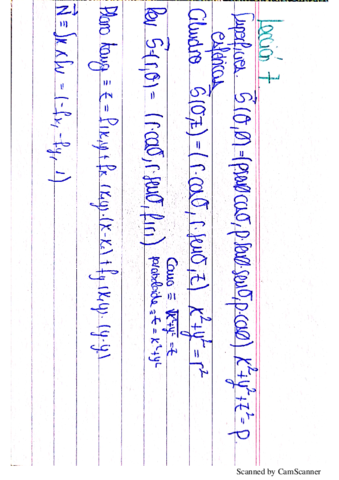 Lección 7
Superficies S⃗(θ,φ)=(ρsenφcosθ, ρ·senφ·senθ, ρ·cosφ) x²+y²+z²=ρ
esféricas
Cilindro S⃗(θ,z)=(r·cosθ, r·senθ, z) x²+y²=r²
S⃗=(r,θ)=(r·cosθ, r·senθ, f(r))
Cono ≡ √x²+y²=z
paraboloide ≡ z=x²+y²
Plano tang ≡ z=f(x,y)+fx(x,y)·(x-x₀)+fy(x,y)·(y-y₀)
N⃗ ≡ Sx×Sy=(-fx,-fy,1)
Scanned by CamScanner